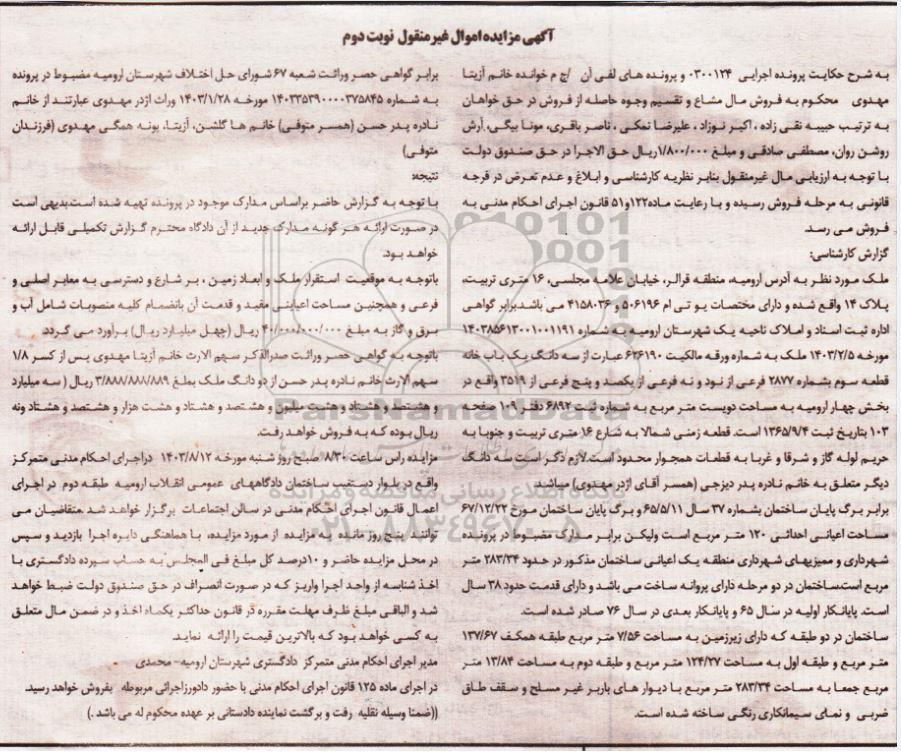 آگهی مزایده اموال غیرمنقول نوبت دوم
به شرح حکایت پرونده اجرایی ۰۳۰۰۱۲۴ و پرونده های لفی آن /ج م خوانده خانم آزیتا
مهدوی محکوم به فروش مال مشاع و تقسیم وجوه حاصله از فروش در حق خواهان
به ترتیب حبیبه نقی زاده ، اکبر نوزاد ، علیرضا نمکی ، ناصر باقری، مونا بیگی، آرش
روشن روان، مصطفی صادقی و مبلغ ۱/۸۰۰/۰۰۰ریال حق الاجرا در حق صندوق دولت
با توجه به ارزیابی مال غیرمنقول بنابر نظریه کارشناسی و ابلاغ و عدم تعرض در فرجه
قانونی به مرحله فروش رسیده و با رعایت ماده۱۲۲و۵۱ قانون اجرای احکام مدنی به
فروش می رسد.
گزارش کارشناسی:
ملک مورد نظر به آدرس ارومیه، منطقه قرالر، خیابان علامه مجلسی، ۱۶ متری تربیت،
پلاک ۱۴ واقع شده و دارای مختصات یو تی ام ۵۰۶۱۹۶و ۴۱۵۸۰۳۶ می باشد.برابر گواهی
اداره ثبت اسناد و املاک ناحیه یک شهرستان ارومیه به شماره ۱۴۰۳۸۵۶۱۳۰۰۱۰۰۱۱۹۱
مورخه ۱۴۰۳/۲/۵ ملک به شماره ورقه مالکیت ۶۲۶۱۹۰ عبارت از سه دانگ یک باب خانه
قطعه سوم بشماره ۲۸۷۷ فرعی از نود و نه فرعی از یکصد و پنج فرعی از ۳۵۱۹ واقع در
بخش چهار ارومیه به مساحت دویست متر مربع به شماره ثبت ۶۸۹۲ دفتر ۱۰۹ صفحه
۱۰۳ بتاریخ ثبت ۱۳۶۵/۹/۴ است. قطعه زمنی شمالا به شارع ۱۶ متری تربیت و جنوبا به
حریم لوله گاز و شرقا و غربا به قطعات همجوار محدود است.لازم ذکر است سه دانگ
دیگر متعلق به خانم نادره پدر دیزجی (همسر آقای اژدر مهدوی) میباشد.
برابر برگ پایان ساختمان بشماره ۳۷ سال ۶۵/۵/۱۱ و برگ پایان ساختمان مورخ ۶۷/۱۲/۲۲
مساحت اعیانی احداثی ۱۲۰ متر مربع است ولیکن برابر مدارک مضبوط در پرونده
شهرداری و ممیزیهای شهرداری منطقه یک اعیانی ساختمان مذکور در حدود ۲۸۳/۳۴ متر
مربع است.ساختمان در دو مرحله دارای پروانه ساخت می باشد و دارای قدمت حدود ۳۸ سال
است. پایانکار اولیه در سال ۶۵ و پایانکار بعدی در سال ۷۶ صادر شده است.
ساختمان در دو طبقه که دارای زیرزمین به مساحت ۷/۵۶ متر مربع طبقه همکف ۱۳۷/۶۷
متر مربع و طبقه اول به مساحت ۱۲۴/۲۷ متر مربع و طبقه دوم به مساحت ۱۳/۸۴ متر
مربع جمعا به مساحت ۲۸۳/۳۴ متر مربع با دیوار های باربر غیر مسلح و سقف طاق
ضربی و نمای سیمانکاری رنگی ساخته شده است.
برابر گواهی حصر وراثت شعبه ۶۷ شورای حل اختلاف شهرستان ارومیه مضبوط در پرونده
به شماره ۱۴۰۳۳۵۳۹۰۰۰۰۳۷۵۸۴۵ مورخه ۱۴۰۳/۱/۲۸ وراث اژدر مهدوی عبارتند از خانم
نادره پدر حسن (همسر متوفی) خانم ها گلشن، آزیتا، پونه همگی مهدوی (فرزندان
متوفی)
نتیجه:
با توجه به گزارش حاضر براساس مدارک موجود در پرونده تهیه شده است.بدیهی است
در صورت ارائه هر گونه مدارک جدید از آن دادگاه محترم گزارش تکمیلی قابل ارائه
خواهد بود.
باتوجه به موقعیت استقرار ملک و ابعاد زمین ، بر شارع و دسترسی به معابر اصلی و
فرعی و همچنین مساحت اعیانی مفید و قدمت آن بانضمام کلیه منصوبات شامل آب و
برق و گاز به مبلغ ۴۰/۰۰۰/۰۰۰/۰۰۰ ریال (چهل میلیارد ریال) برآورد می گردد.
باتوجه به گواهی حصر وراثت صدرالذکر سهم الارث خانم آزیتا مهدوی پس از کسر ۱/۸
سهم الارث خانم نادره پدر حسن از دو دانگ ملک بمبلغ ۳/۸۸۸/۸۸۸/۸۸۹ ریال ( سه میلیارد
و هشتصد و هشتاد و هشت میلیون و هشتصد و هشتاد و هشت هزار و هشتصد و هشتاد ونه
ریال بوده که به فروش خواهد رفت.
مزایده راس ساعت ۸/۳۰ صبح روز شنبه مورخه ۱۴۰۳/۸/۱۲ دراجرای احکام مدنی متمرکز
واقع در بلوار دستغیب ساختمان دادگاههای عمومی انقلاب ارومیه طبقه دوم در اجرای
اعمال قانون اجرای احکام مدنی در سالن اجتماعات برگزار خواهد شد .متقاضیان می
توانند پنج روز مانده به مزایده از مورد مزایده، با هماهنگی دایره اجرا بازدید و سپس
در محل مزایده حاضر و ۱۰درصد کل مبلغ فی المجلس به حساب سپرده دادگستری با
اخذ شناسه از واحد اجرا واریز که در صورت انصراف در حق صندوق دولت ضبط خواهد
شد و الباقی مبلغ ظرف مهلت مقرره در قانون حداکثر یکماه اخذ و در ضمن مال متعلق
به کسی خواهد بود که بالاترین قیمت را ارائه نماید.
مدیر اجرای احکام مدنی متمرکز دادگستری شهرستان ارومیه- محمدی
در اجرای ماده ۱۲۵ قانون اجرای احکام مدنی با حضور دادورزاجرائی مربوطه بفروش خواهد رسید.
((ضمنا وسیله نقلیه رفت و برگشت نماینده دادستانی بر عهده محکوم له می باشد .)
ParsNamadData
پایگاه اطلاع رسانی مناقصه و مزایده
۰۲۱-۸۸۳۴۹۶۷۰-۵